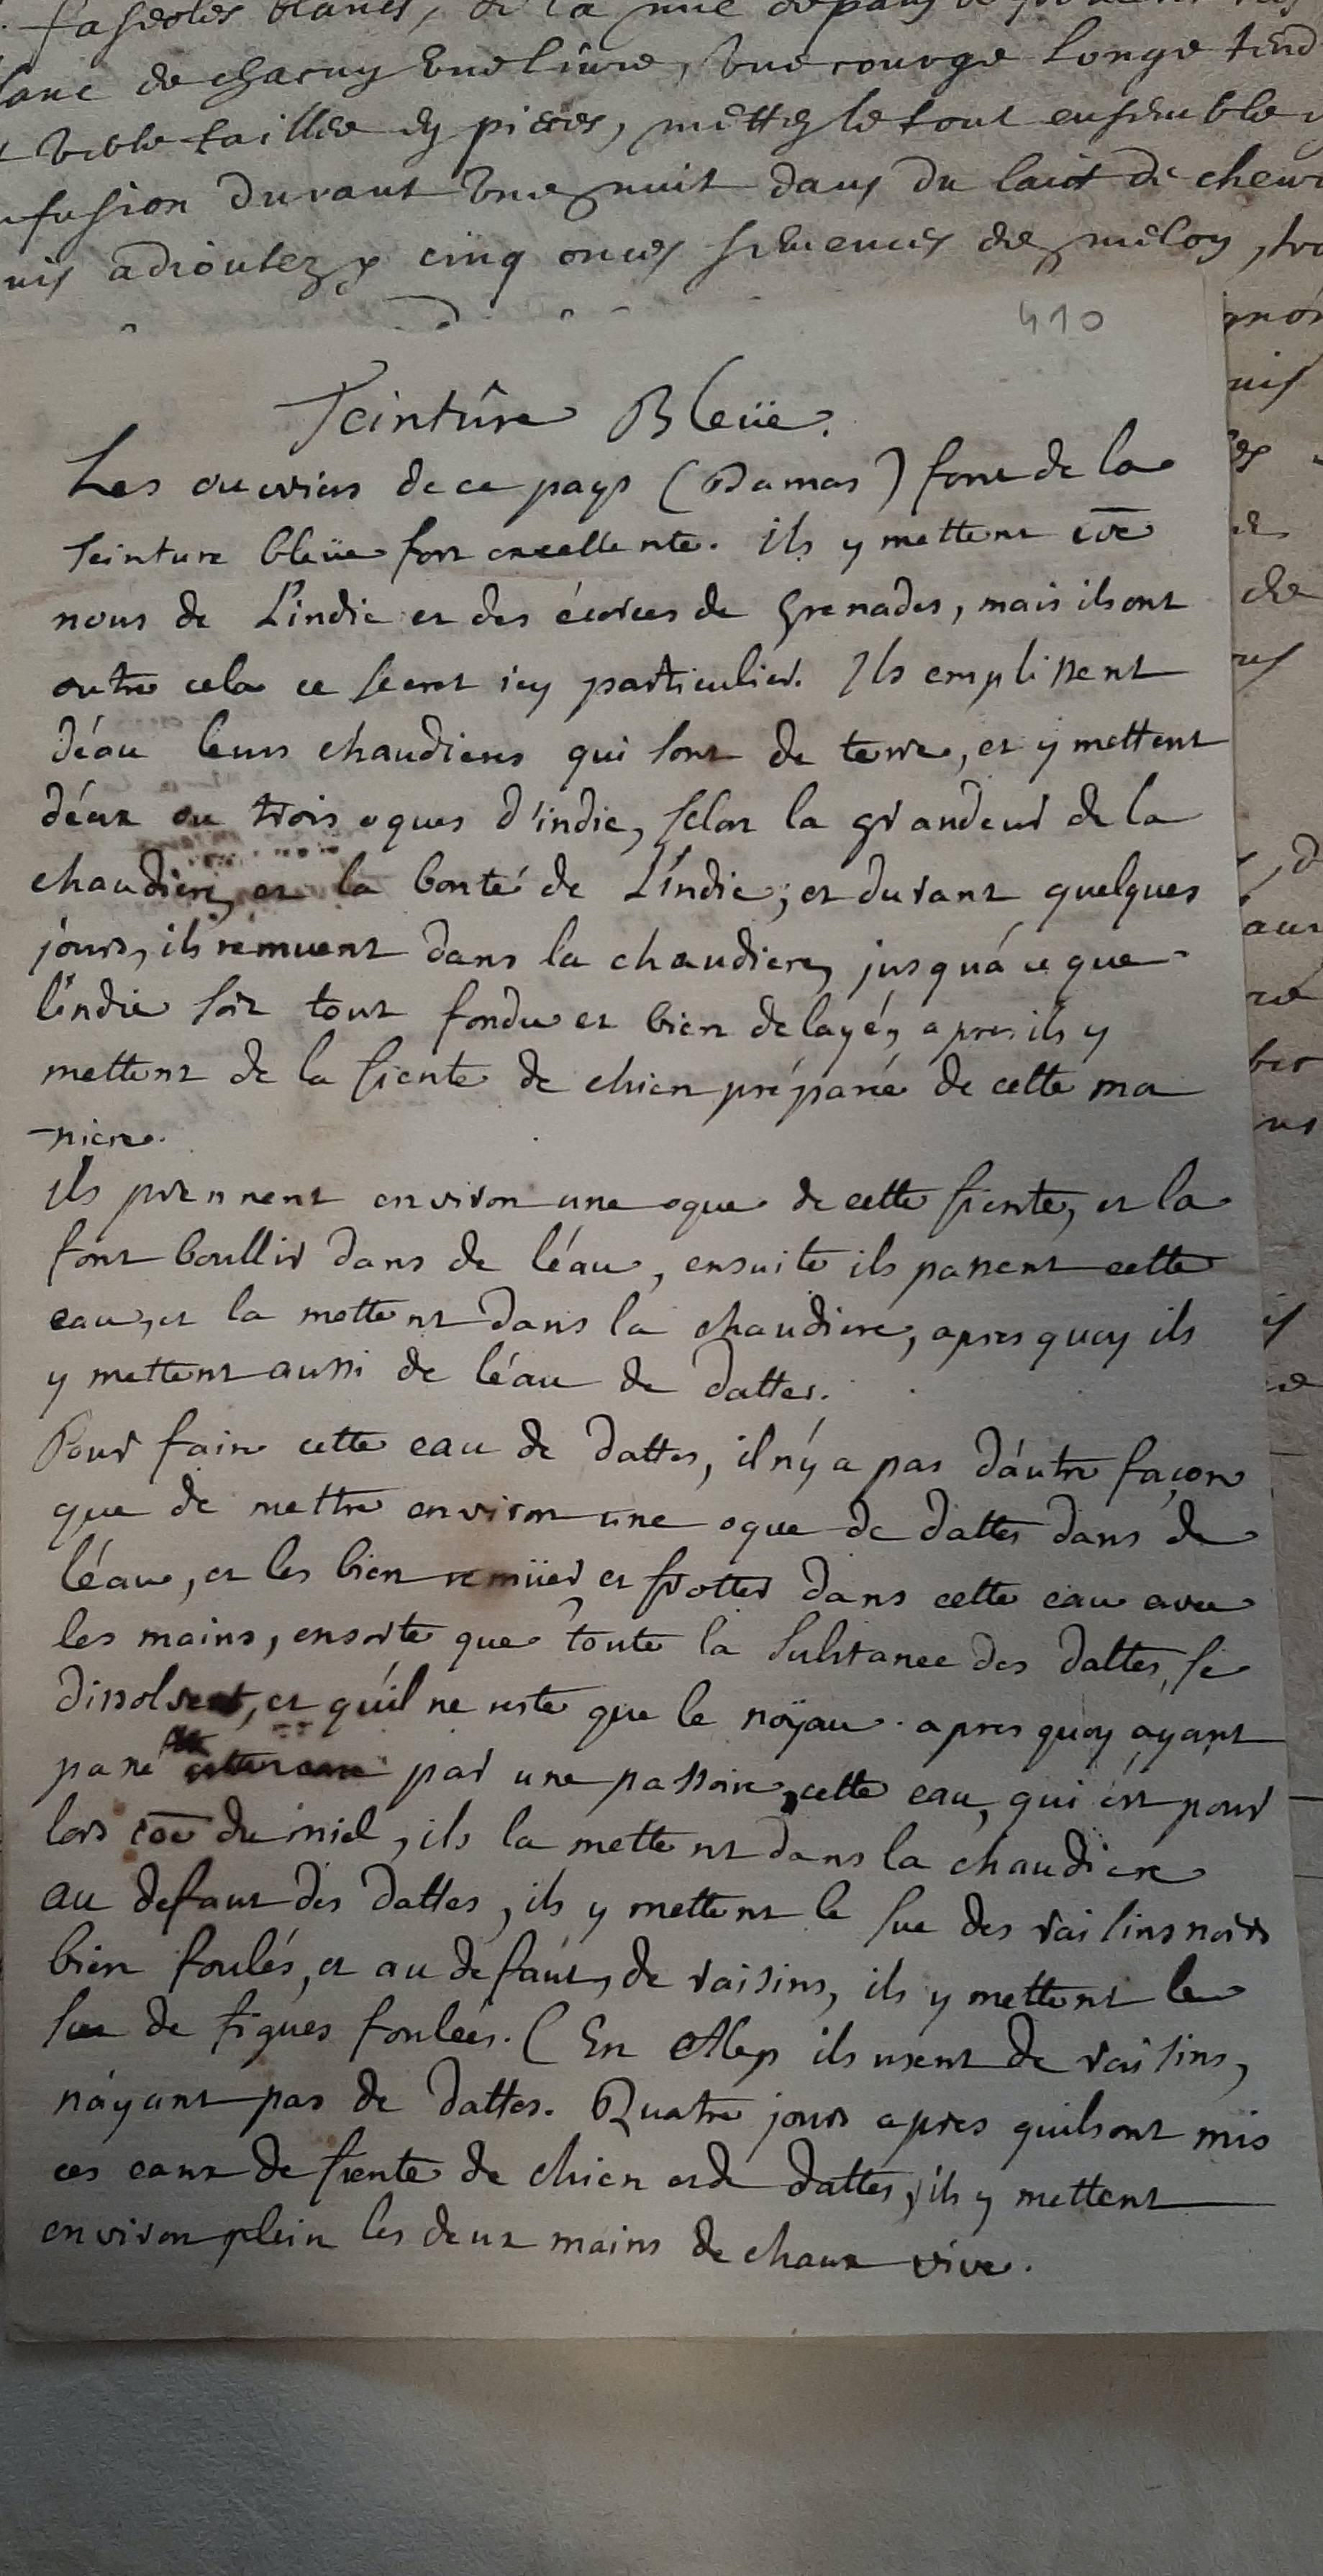 faseoles blancs, de la mie de pain de
blanc de chacun une livre, une courge longe
taillée en pieces, mettez le tout ensemble
infusion durant une nuit dans du laict de
adioutez y cinq onces semences de melon,
410
Teintûre Bleüe.
Les ouvriers de ce pays (Damas) font de la
teinture bleüe fort excellente. ils y mettent cōe
nous de L'indic et des écorces de Grenades, mais ils ont
outre cela ce secret icy particulier. Ils emplissent
d'éau leurs chaudieres qui sont de terre, et y mettent
déux ou trois oques d'indic, selon la grandeur de la
chaudiere, et la bonté de L'indic; et durant quelques
jours, ils remuent dans la chaudiere, jusqu'á ce que
l'indic soit tout fondu et bien delayé, apres ils y
mettent de la fiente de chien préparée de cette ma
-niere.
Ils prennent environ une oque de cette fiente, et la
font boullir dans de l'éau, ensuite ils passent cette
eau, et la mettent dans la chaudiere, apres quoy ils
y mettent aussi de l'éau de dattes.
Pour faire cette eau de dattes, il n'y a pas d'áutre façon
que de mettre environ une oque de dattes dans de
l'éau, et les bien remüer et frotter dans cette eau avec
les mains, ensorte que toute la substance des dattes, se
dissolvent, et qu'il ne reste que le noÿau. apres quoy ayant
passé par une passoire, cette eau, qui ést pour
lors cōe du miel, ils la mettent dans la chaudiere
au defaut des dattes, ils y mettent le suc des raisins noirs
bien foulés, et au defaut, de raisins, ils y mettent le
suc de figues foulées. (En Alep ils usent de raisins,
n'áyant pas de dattes. Quatre jours apres quils ont mis
ces eaux de fiente de chien et de dattes, ils y mettent
environ plein les deux mains de chaux vive.